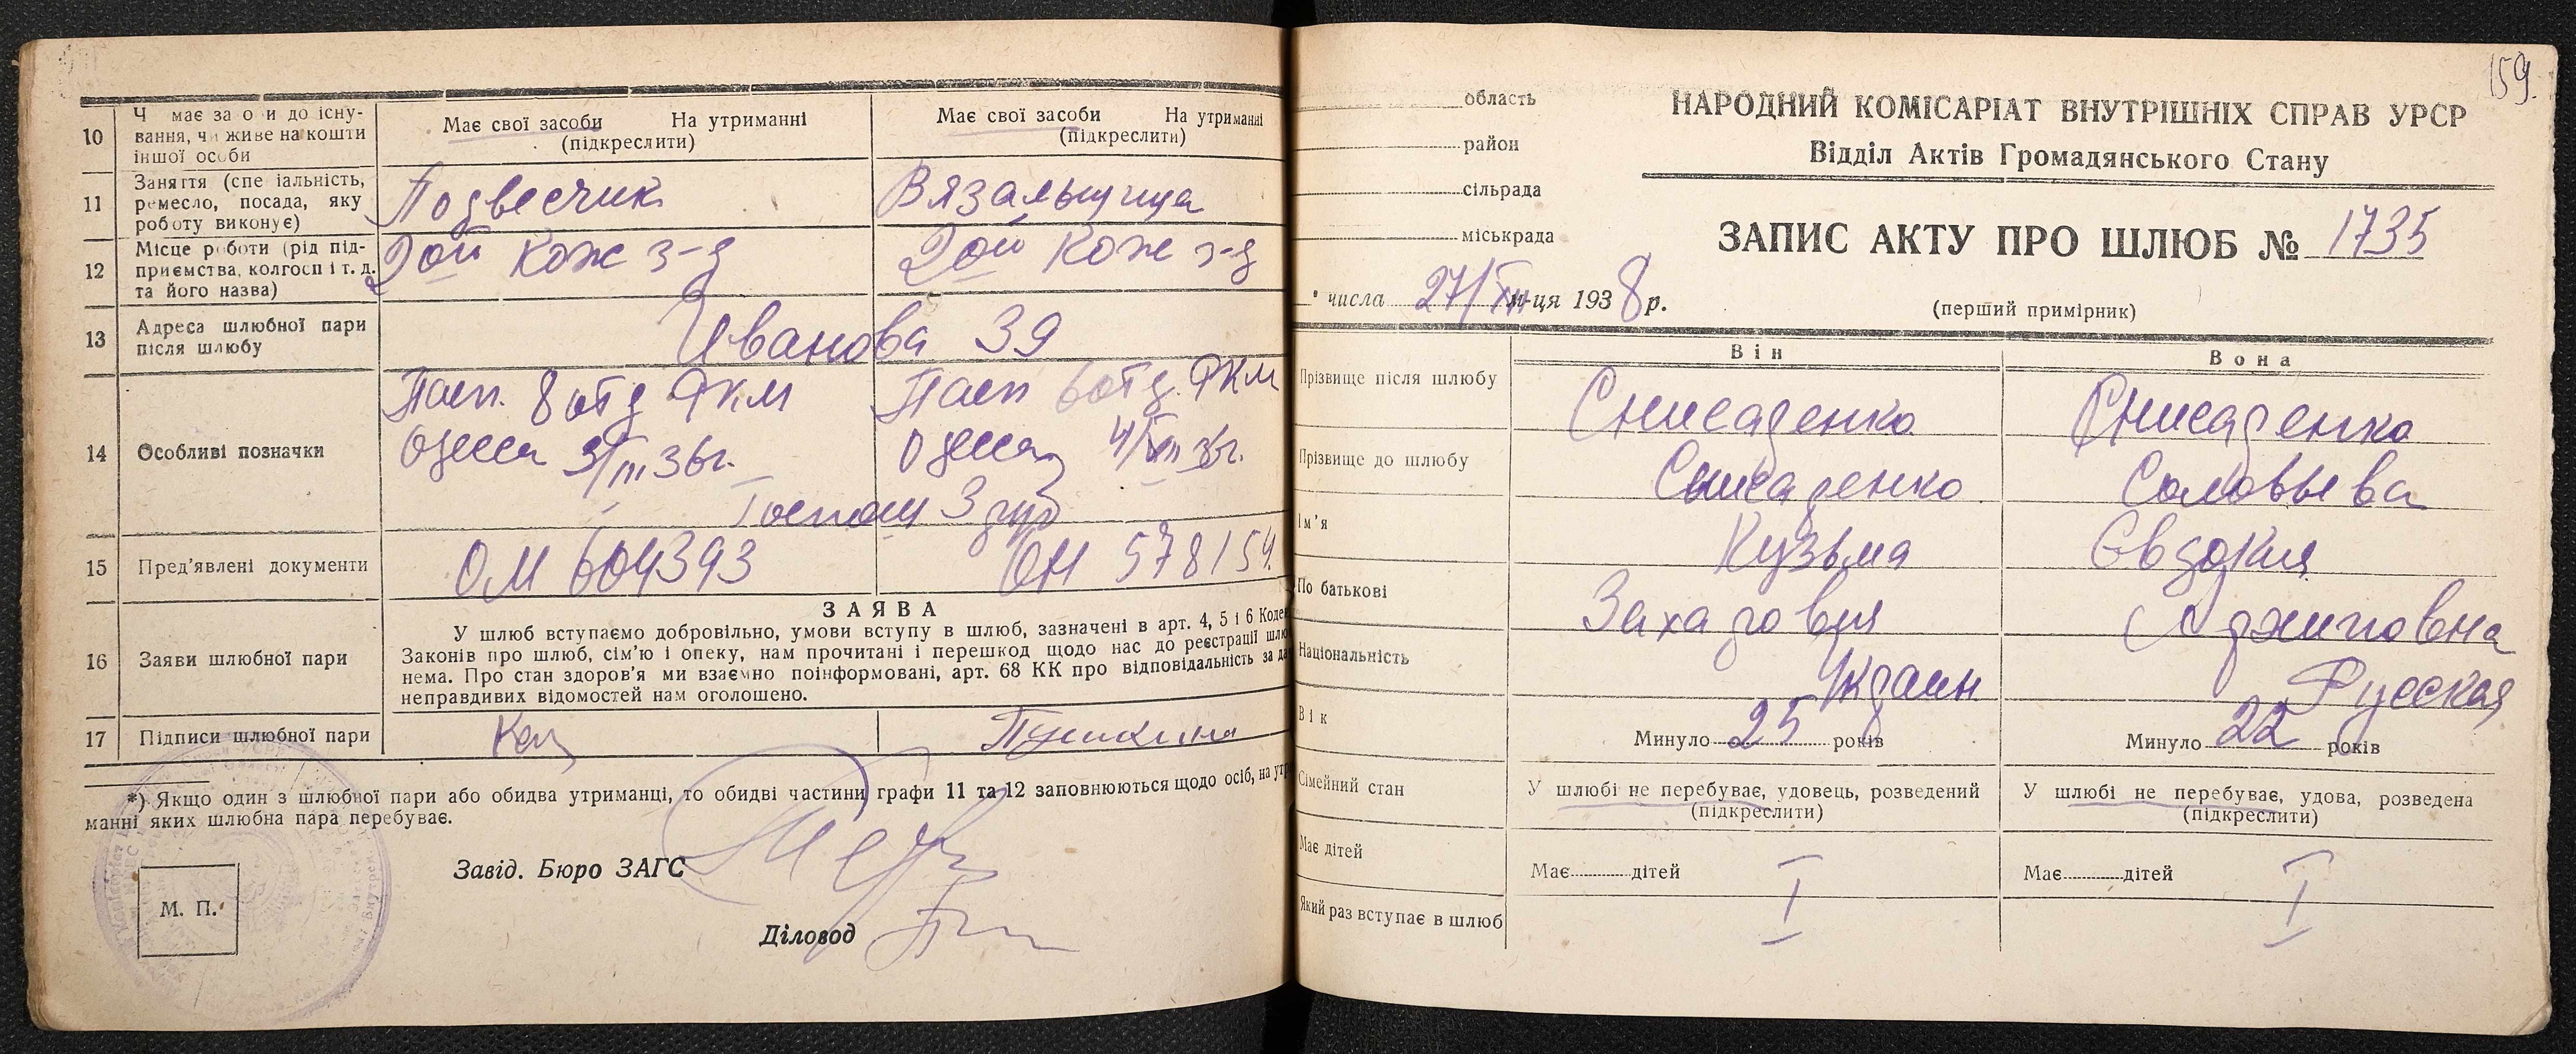 10
Ч має за о и до існу-
вання, чи живе на кошти
іншої особи
Має свої засоби На утриманні
(підкреслити)
Має свої засоби На утриманні
(підкреслити)
11
Заняття (спе іальність,
ремесло, посада, яку
роботу виконує)
Подвесчик
Вязальщица
12
Місце роботи (рід під-
приємства, колгосп і т. д.
та його назва)
2ой Кож з-д
2ой Кож з-д
13
Адреса шлюбної пари
після шлюбу
Иванова 39
14
Особливі позначки
Пасп. 8 отд РКМ
Одесса 3/III 36г.
Пасп 6 отд. РКМ
Одесса 4/VIII 36г.
Госпош 3 руб
15
Пред'явлені документи
ОМ 604393
ОН 578154
16
Заяви шлюбної пари
ЗАЯВА
У шлюб вступаємо добровільно, умови вступу в шлюб, зазначені в арт. 4, 5 і 6 Коде
Законів про шлюб, сім'ю і опеку, нам прочитані і перешкод щодо нас до реєстрації шлю
нема. Про стан здоров'я ми взаємно поінформовані, арт. 68 КК про відповідальність за да
неправдивих відомостей нам оголошено.
17
Підписи шлюбної пари
*) Якщо один з шлюбної пари або обидва утриманці, то обидві частини графи 11 та 12 заповнюються щодо осіб, на утри
манні яких шлюбна пара перебуває.
Завід. Бюро ЗАГС
М. П.
Діловод
159.
область
район
сільрада
міськрада
НАРОДНИЙ КОМІСАРІАТ ВНУТРІШНІХ СПРАВ УРСР
Відділ Актів Громадянського Стану
ЗАПИС АКТУ ПРО ШЛЮБ № 1735
числа 27/XII м-ця 1938 р.
(перший примірник)
Він
Вона
Прізвище після шлюбу
Снисаренко
Снисаренко
Прізвище до шлюбу
Снисаренко
Соловьева
Ім'я
Кузьма
Євдокия
По батькові
Захарович
Архиповна
Національність
Украин
Русская
Вік
Минуло 25 років
Минуло 22 років
Сімейний стан
У шлюбі не перебуває, удовець, розведений
(підкреслити)
У шлюбі не перебуває, удова, розведена
(підкреслити)
Має дітей
Має дітей
Має дітей
Який раз вступає в шлюб
I
I